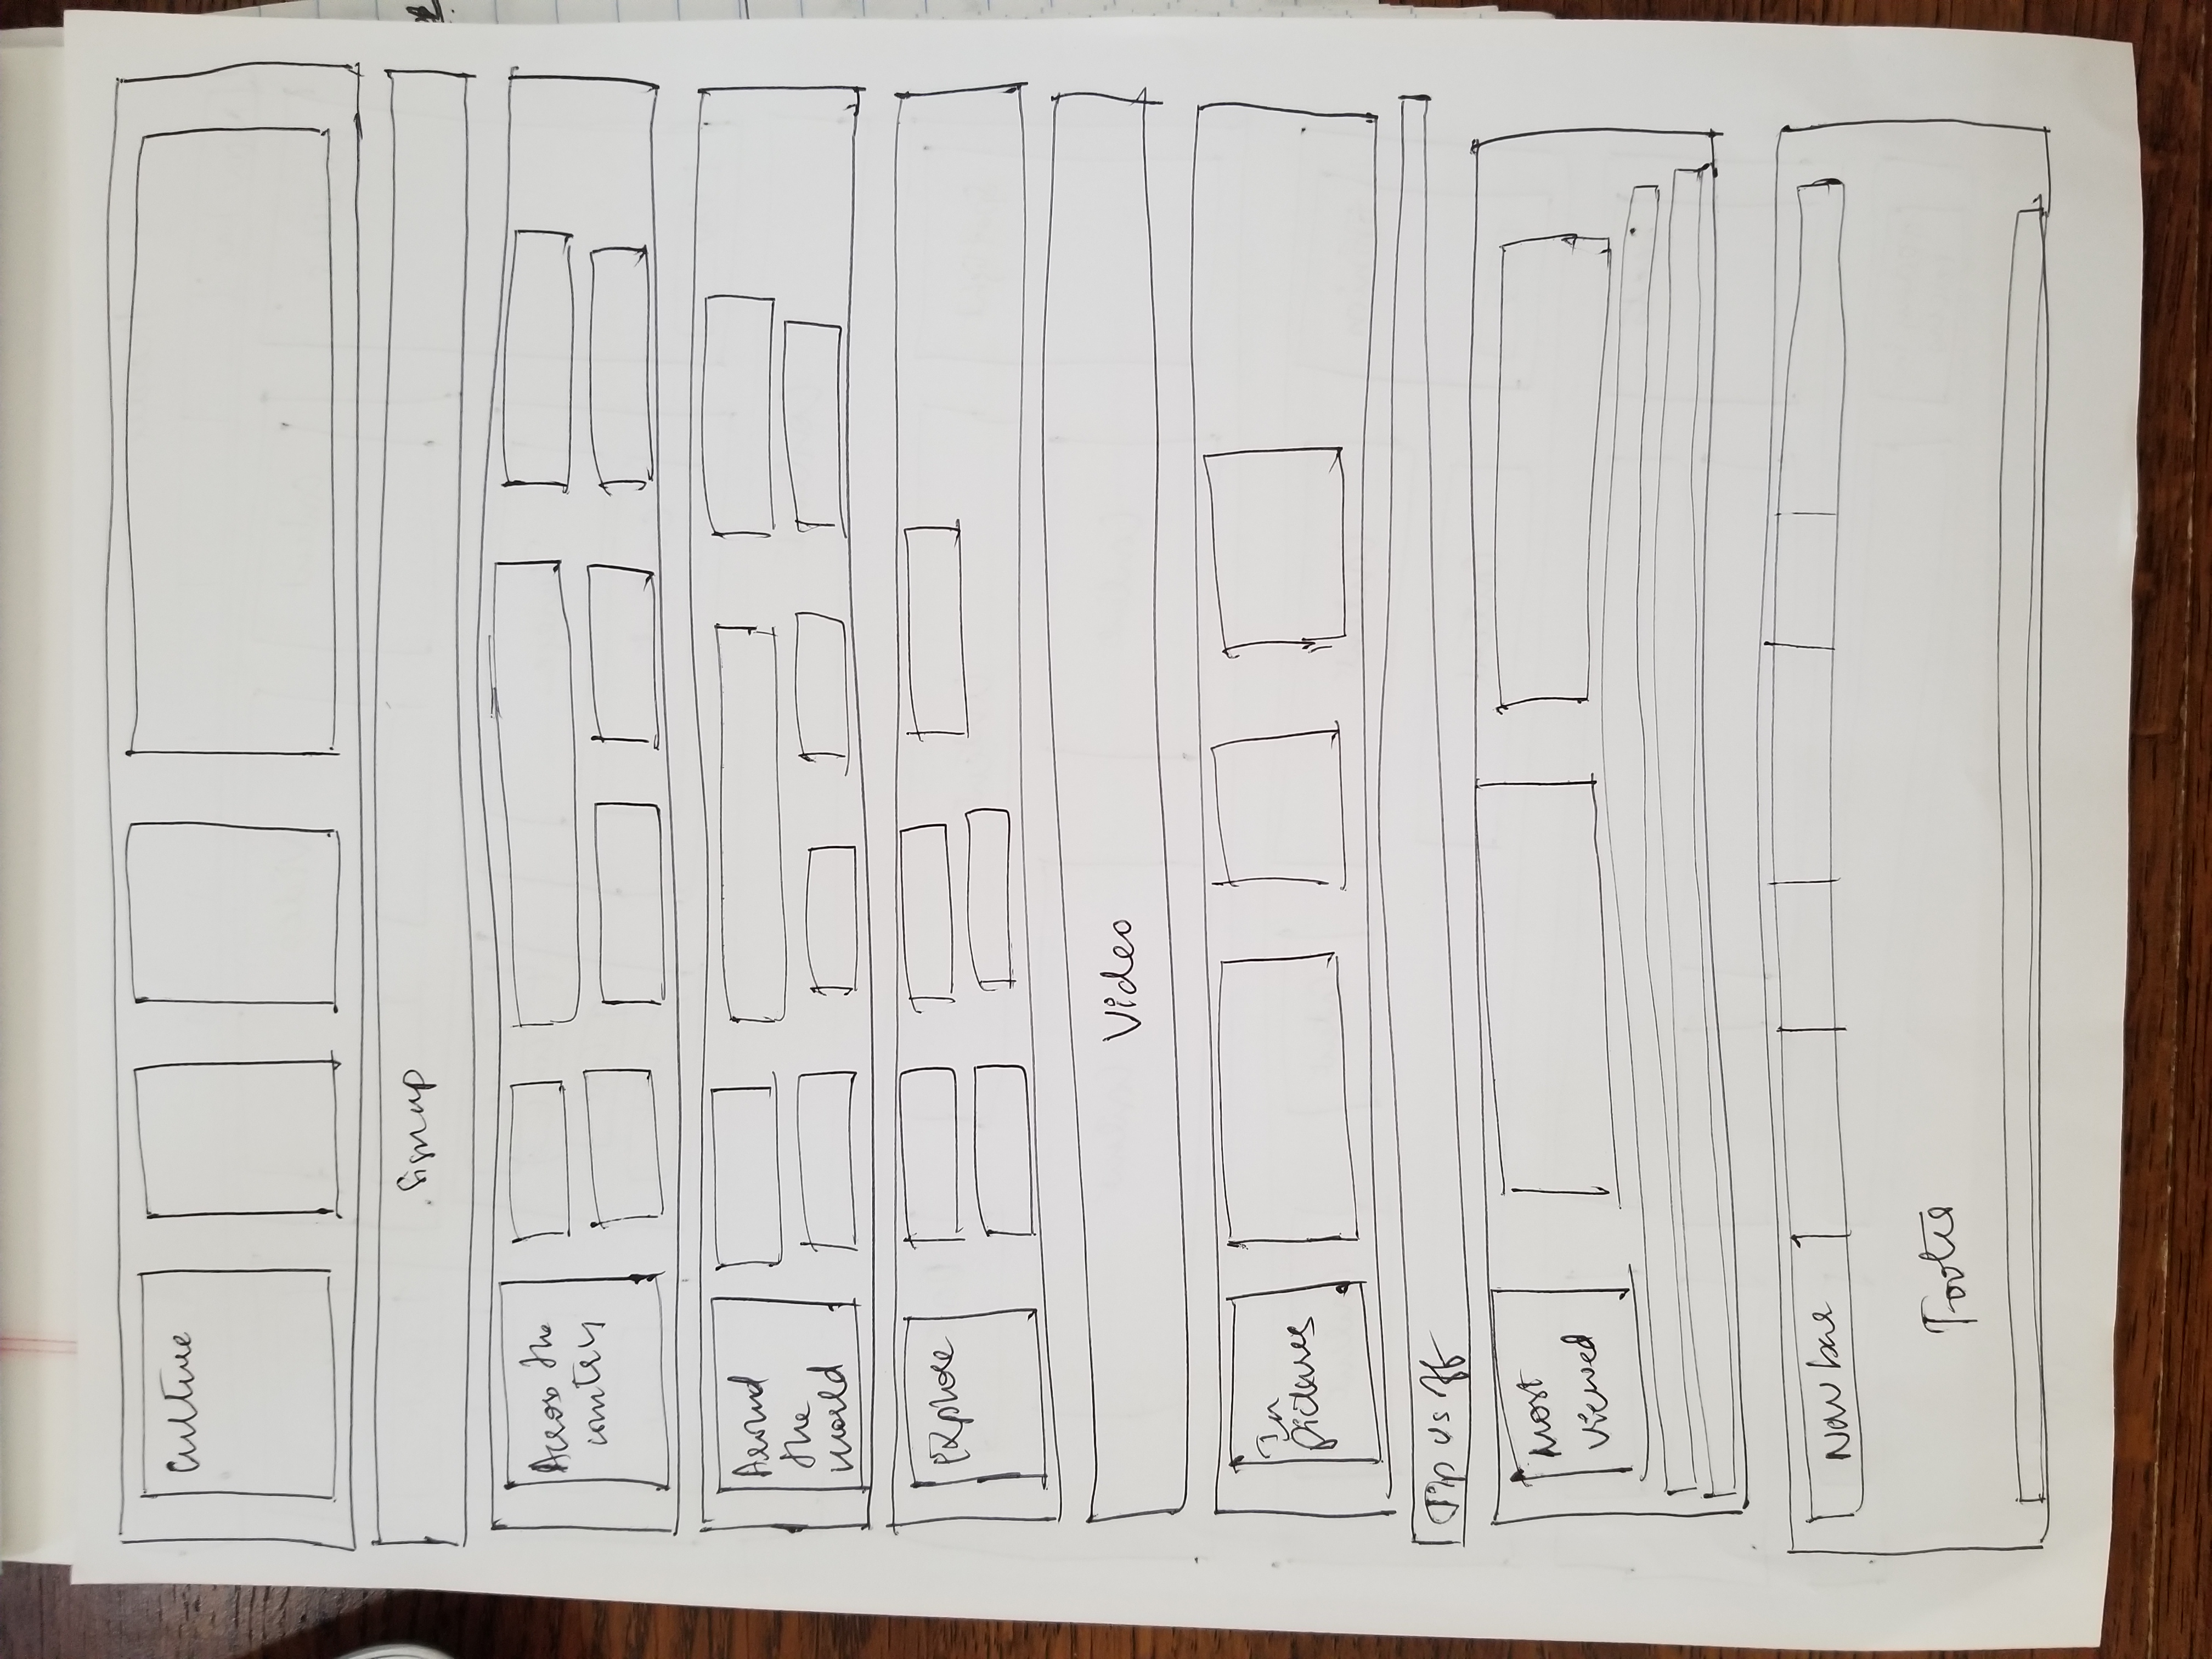 Culture
Sign up
Across the
country
Around
the
world
Explore
Video
In
pictures
Tip us off
Most
viewed
Nav bar
Footer